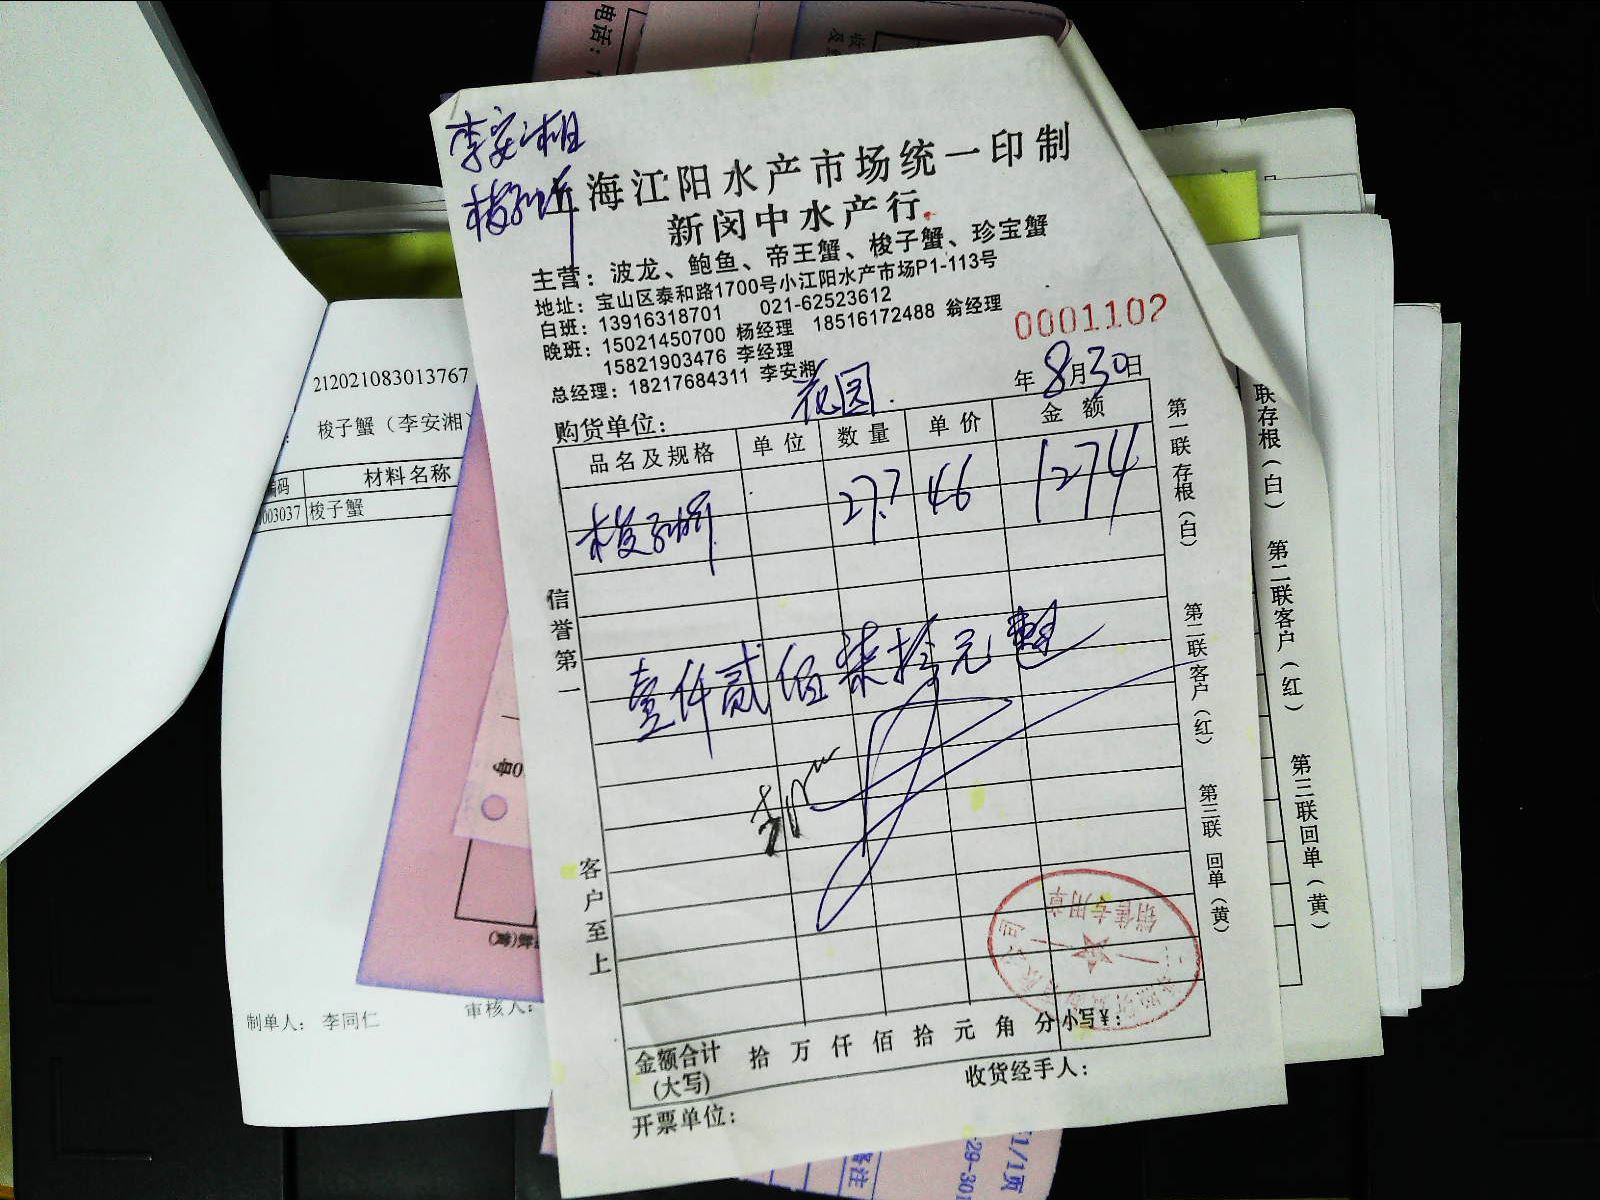 李安湘
梭子蟹
上海江阳水产市场统一印制
新闵中水产行
主营：波龙、鲍鱼、帝王蟹、梭子蟹、珍宝蟹
地址：宝山区泰和路1700号小江阳水产市场P1-113号
白班：13916318701 021-62523612
晚班：15021450700 杨经理 18516172488 翁经理
15821903476 李经理
总经理：18217684311 李安湘
0001102
购货单位： 花园
年 8月30日
品名及规格 单位 数量 单价 金额
梭子蟹 27.7 46 1274
壹仟贰佰柒拾元整
信誉第一
客户至上
第一联存根（白）
第二联客户（红）
第三联回单（黄）
销售专用章
金额合计(大写) 拾 万 仟 佰 拾 元 角 分 小写¥：
收货经手人：
开票单位：
212021083013767
梭子蟹（李安湘
编码 材料名称
003037 梭子蟹
制单人： 李同仁
审核人：
联存根（白）
第二联客户（红）
第三联回单（黄）
电话：
1/1页
备注